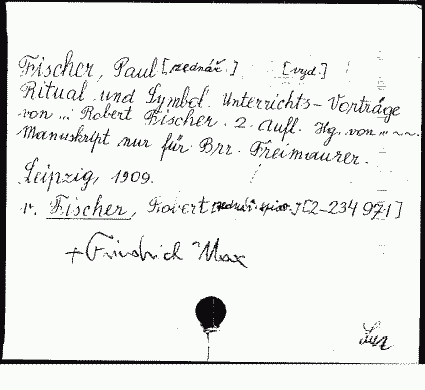 Fischer, Paul [zednář.] [vyd.]
Ritual und Symbol. Unterrichts-Vorträge
von ... Robert Fischer. 2. Aufl. Hg. von ...
Manuskript nur für Brr. Freimaurer.
Leipzig, 1909.
v. Fischer, Robert [zednář. spis.] [2-234 971]
+ Friedrich Max